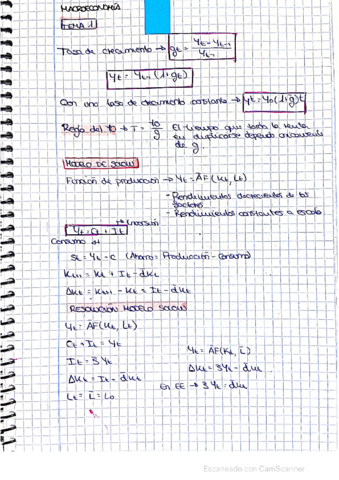 MACROECONOMÍA
TEMA 1
Tasa de crecimiento → gt = (Yt - Yt-1) / Yt-1
Yt = Yt-1 (1+gt)
Con una tasa de crecimiento constante → Yt = Y0 (1+g)t
Regla del 70 → T = 70/g El tiempo que tarda la renta
en duplicarse depende únicamente
de g.
MODELO DE SOLOW
Función de producción → Yt = AF(Kt, Lt)
- Rendimientos decrecientes de los
factores
- Rendimientos constantes a escala
Inversión
Yt = Ct + It
Consumo
St = Yt - C (Ahorro = Producción - Consumo)
Kt+1 = Kt + It - dKt
ΔKt = Kt+1 - Kt = It - dKt
RESOLUCIÓN MODELO SOLOW
Yt = AF(Kt, Lt)
Ct + It = Yt
It = sYt
ΔKt = It - dKt
Lt = L̄ = L0
Yt = AF(Kt, L̄)
ΔKt = sYt - dKt
En EE → sYt = dKt
Escaneado con CamScanner